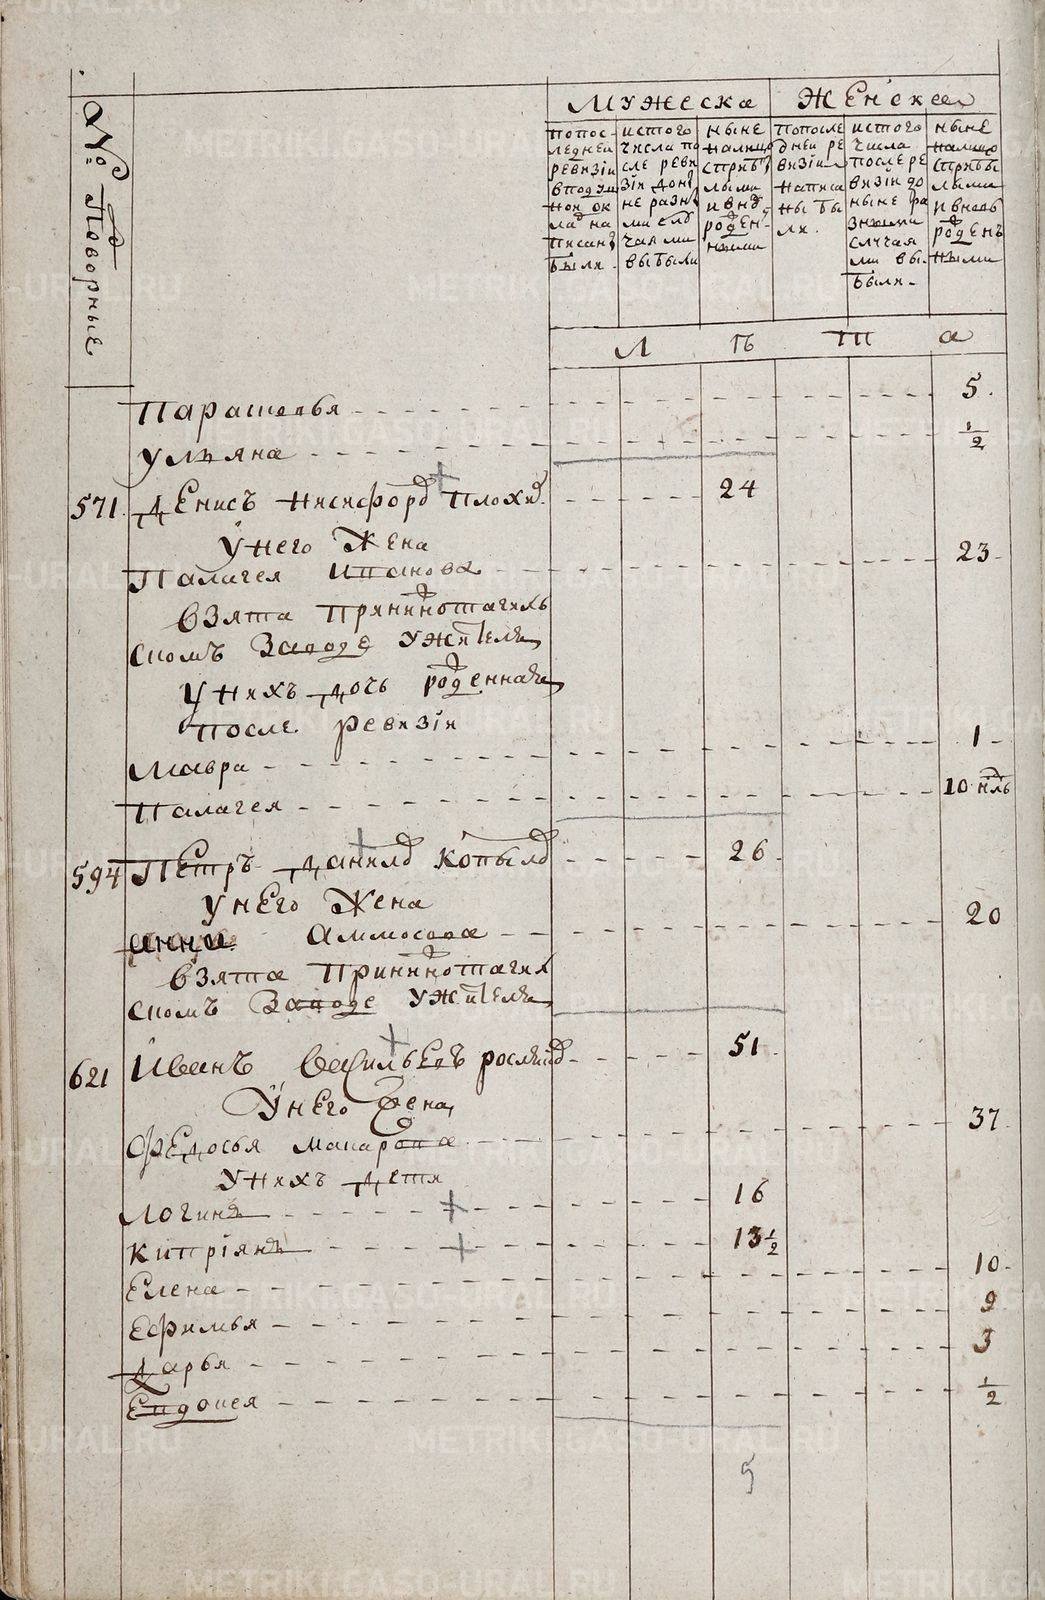 Мужеска Женска
№ Поворные
попос-
ледней
ревизїи
вподуш
ной ок
лад на
писаны
были.
истого
числа по
сле реви
зїи доны
не разны
ми слу
чаями
выбыли
ныне
налицо
сприбы
лыми
ивнов
рожден-
ными
попосле
дней ре
визїи
написа
ны бы
ли.
истого
числа
после ре
визїи до
ныне ра
зными
случая
ми вы-
были.
ныне
налицо
сприбы
лыми
ивновь
рожденъ
ными
Л ѣ т а
Парасковья 5.
Ульяна 1/2
571. Денисъ Никифоров Плохих 24
Унего Жена
Палагея Иванова 23
взята Принижнотагиль
скомъ Заводе Ужителя
Унихъ дочь рожденная
после ревизїи
Мавра 1
Палагея 10 нлъ
594 Петръ Данилов Копылов 26
Унего Жена
анна Аммосова 20
взята Принижнотагил
скомъ Заводе Ужителя
621 Иванъ Васильевъ 51
Унего Жена
Федосья Макарова 37
Унихъ дети
Логинъ 16
Кипрїянъ 13 1/2
Елена 10
Ефимья 9
Дарья 3
Евдокея 1/2
5
METRIKI.GASO-URAL.RU